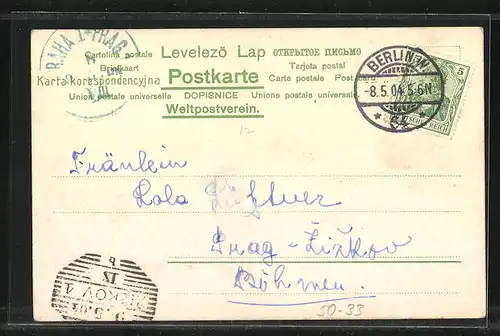 PRAHA 1-PRAG
Cartolina postale Levelező Lap ОТКРЫТОЕ ПИСЬМО
Briefkaart Tarjeta postal
Karta korespondencyjna Postkarte Carte postale Post card
Union postale universelle DOPISNICE Unione postale universale
Weltpostverein.
BERLIN.W.
-8.5.04.5-6N
* 64 *
5
REICH
12
Fräulein
Lola
Prag-Žižkov
Böhmen.
ŽIŽKOV 1
9.5.04
IX
50-33